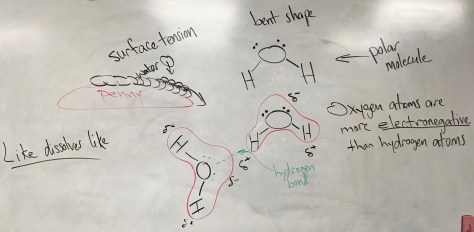 surface tension
water
penny
bent shape
H H
polar
molecule
Like dissolves like
δ+
H
O
H
δ+
δ-
δ-
H H
δ+
δ+
hydrogen
bond
Oxygen atoms are
more electronegative
than hydrogen atoms